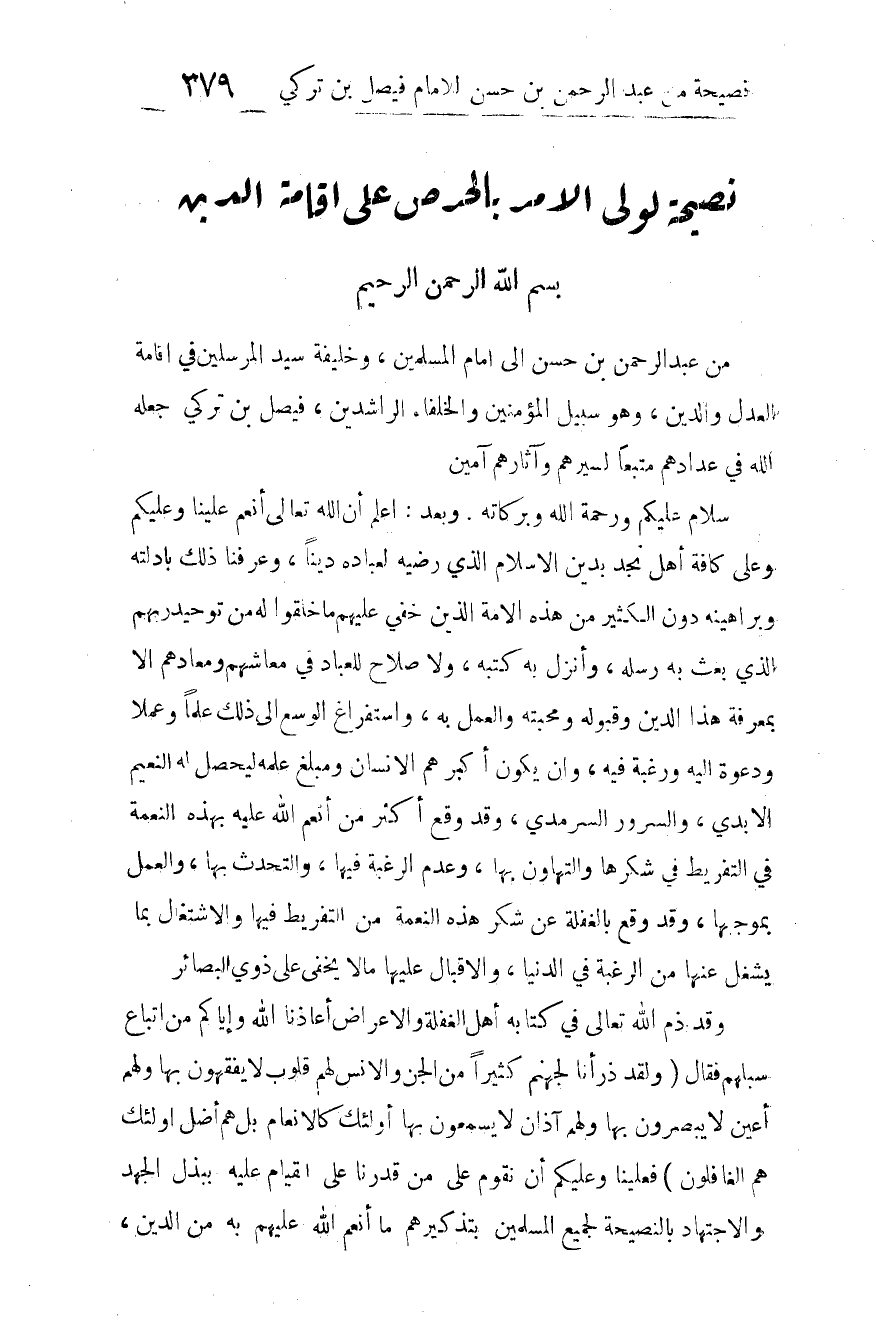 نصيحة من عبد الرحمن بن حسن للامام فيصل بن تركي ٣٧٩
نصيحة لولي الامر بالحرص على اقامة الدين
بسم الله الرحمن الرحيم
من عبدالرحمن بن حسن الى امام المسلمين ، وخليفة سيد المرسلين في اقامة
العدل والدين ، وهو سبيل المؤمنين والخلفاء الراشدين ، فيصل بن تركي جعله
الله في عدادهم متبعاً لسيرهم وآثارهم آمين
سلام عليكم ورحمة الله وبركاته . وبعد : اعلم أن الله تعالى أنعم علينا وعليكم
وعلى كافة أهل نجد بدين الاسلام الذي رضيه لعباده ديناً ، وعرفنا ذلك بادلته
وبراهينه دون الكثير من هذه الامة الذين خفي عليهم ماخلقوا له من توحيد ربهم
الذي بعث به رسله ، وأنزل به كتبه ، ولا صلاح للعباد في معاشهم ومعادهم الا
بمعرفة هذا الدين وقبوله ومحبته والعمل به ، واستفراغ الوسع الى ذلك علماً وعملا
ودعوة اليه ورغبة فيه ، وان يكون أكبر هم الانسان ومبلغ علمه ليحصل له النعيم
الابدي ، والسرور السرمدي ، وقد وقع أكثر من أنعم الله عليه بهذه النعمة
في التفريط في شكرها والتهاون بها ، وعدم الرغبة فيها ، والتحدث بها ، والعمل
بموجبها ، وقد وقع بالغفلة عن شكر هذه النعمة من التفريط فيها والاشتغال بما
يشغل عنها من الرغبة في الدنيا ، والاقبال عليها مالا يخفى على ذوي البصائر
وقد ذم الله تعالى في كتابه أهل الغفلة والاعراض أعاذنا الله وإياكم من اتباع
سبلهم فقال ( ولقد ذرأنا لجهنم كثيراً من الجن والانس لهم قلوب لا يفقهون بها ولهم
أعين لا يبصرون بها ولهم آذان لا يسمعون بها أولئك كالانعام بل هم أضل اولئك
هم الغافلون ) فعلينا وعليكم أن نقوم على من قدرنا على القيام عليه ببذل الجهد
والاجتهاد بالنصيحة لجميع المسلمين بتذكيرهم ما أنعم الله عليهم به من الدين ،